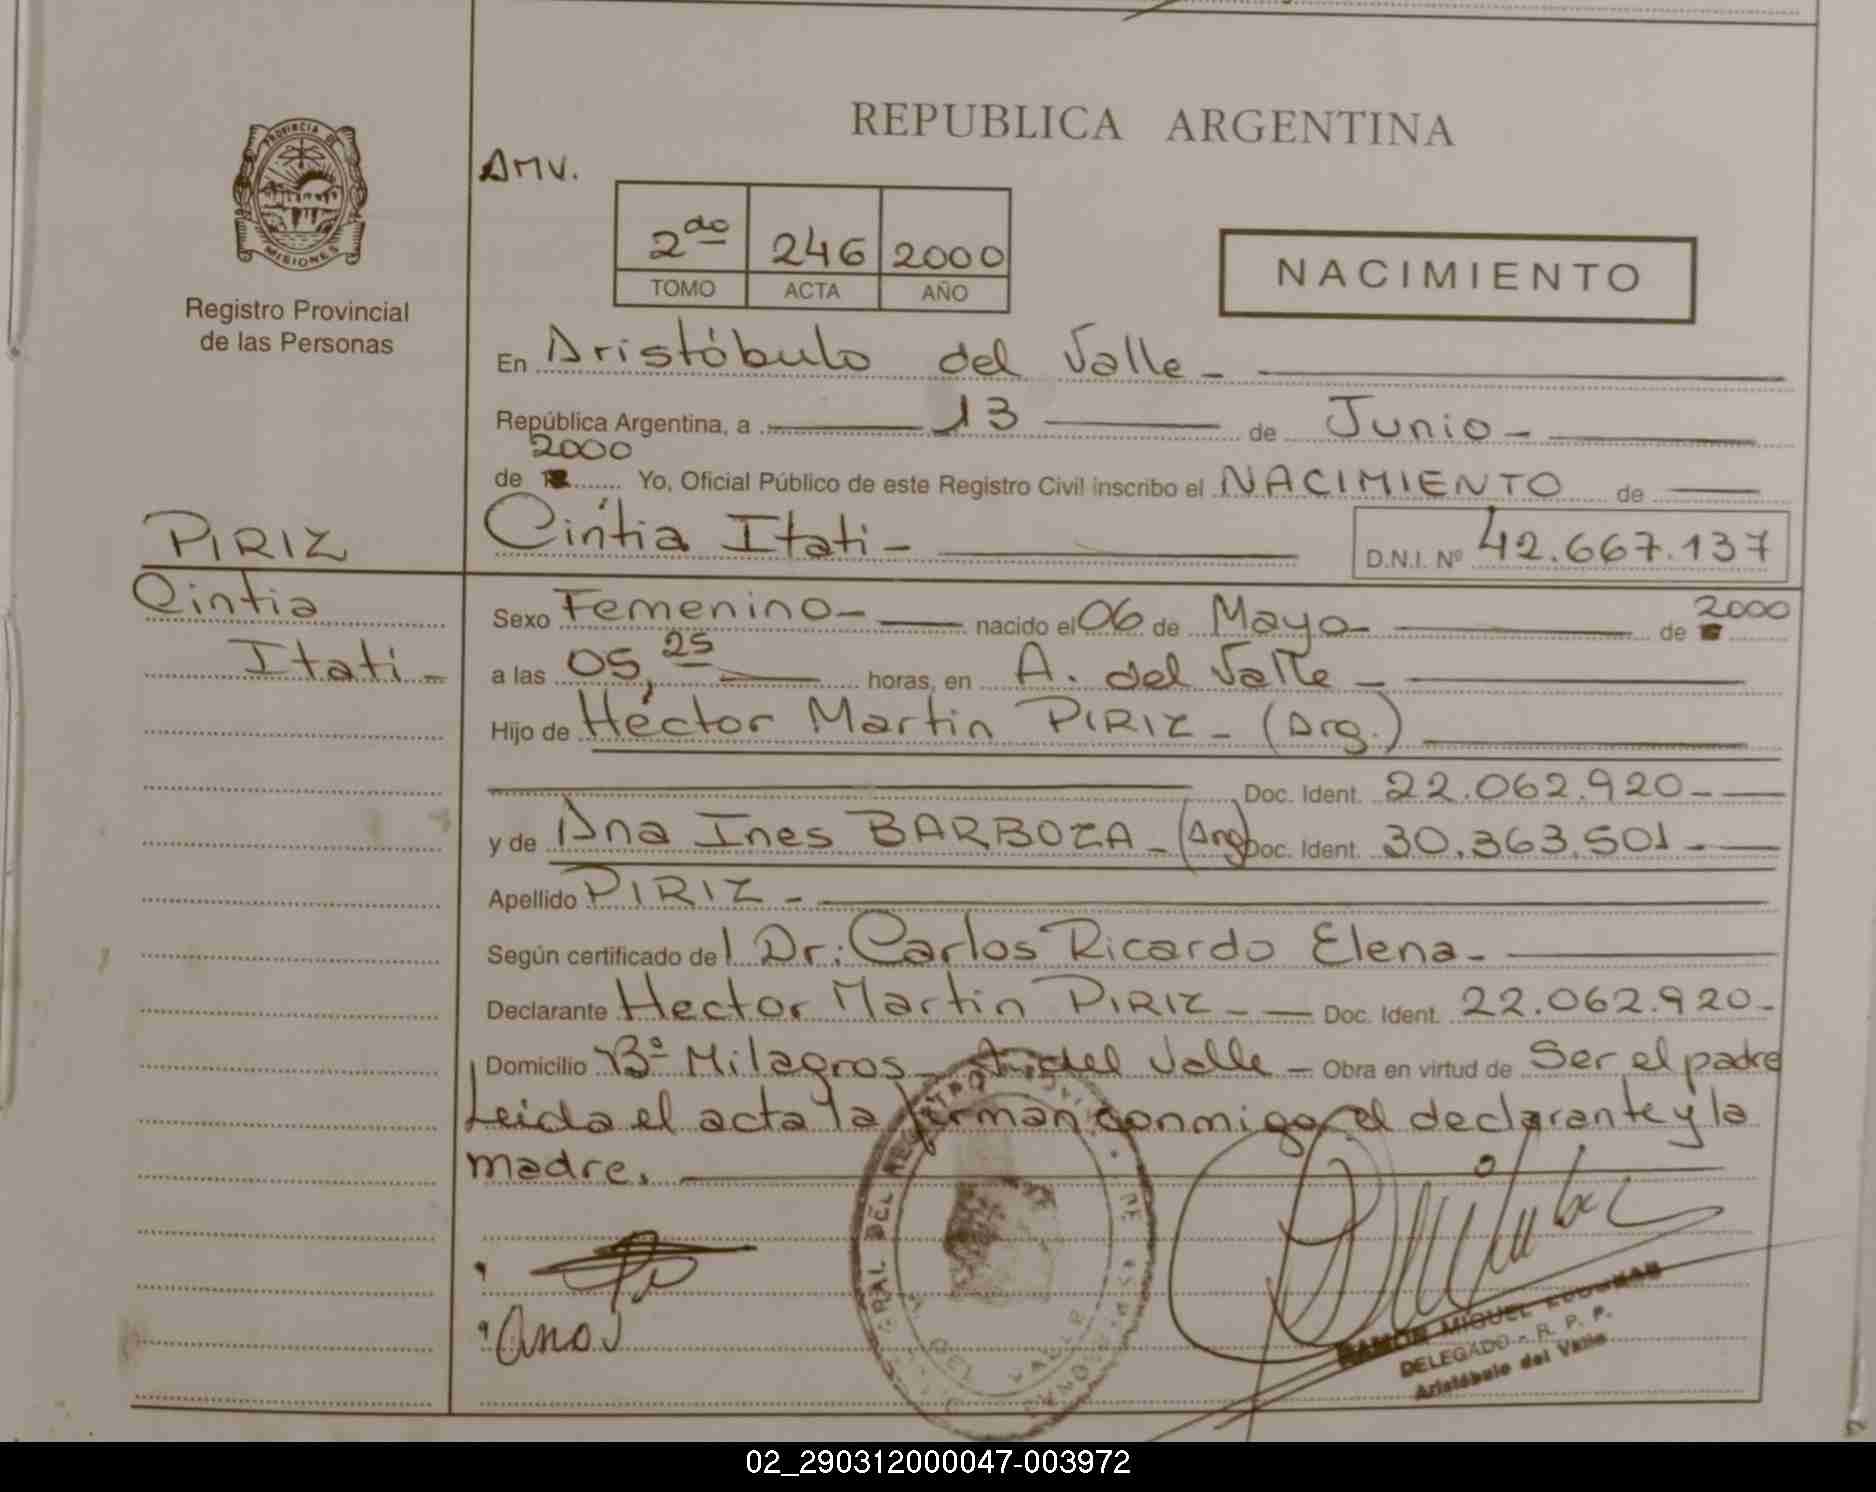 REPUBLICA ARGENTINA
PROVINCIA DE
MISIONES
Registro Provincial
de las Personas
AMV.
2do 246 2000
TOMO ACTA AÑO
NACIMIENTO
En Aristóbulo del Valle -
República Argentina, a 13 de Junio -
2000
de Yo, Oficial Público de este Registro Civil inscribo el NACIMIENTO de
PIRIZ
Cintia Itati - D.N.I. Nº 42.667.137
Cintia
Itati -
Sexo Femenino - nacido el 06 de Mayo - de 2000
a las 05,25 horas, en A. del Valle -
Hijo de Héctor Martin PIRIZ - (Arg.)
Doc. Ident. 22.062.920 -
y de Ana Ines BARBOZA - (Arg) Doc. Ident. 30.363.501 -
Apellido PIRIZ -
Según certificado del Dr: Carlos Ricardo Elena -
Declarante Hector Martin PIRIZ - Doc. Ident. 22.062.920 -
Domicilio Bº Milagros - A. del Valle - Obra en virtud de Ser el padre
Leida el acta la firman conmigo el declarante y la
madre.
Ana
RAMON MIGUEL
DELEGADO - R. P. P.
Aristóbulo del Valle
02_290312000047-003972